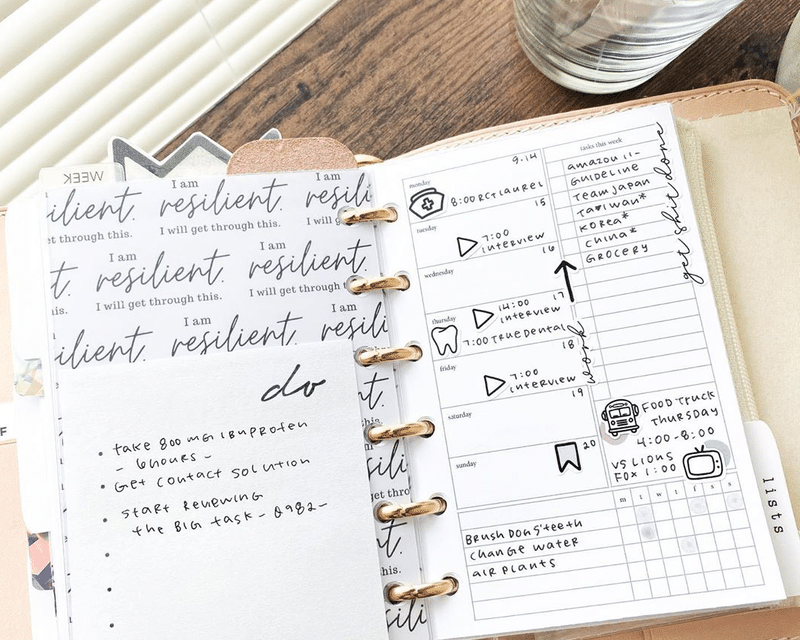 WEEK
I am
I am
I am
resilient.
resilient.
resili
I will get through this.
I will get through this.
I will g
I am
I am
resilient.
resilient.
I will get through this.
I will get through this.
I am
I am
resilient.
resilient.
resili
do
• take 800 mg IBuprofen
- 6hours -
• Get contact solution
• start renewing
the BIG task - 0982 -
F
monday
9.14
8:00 RCT Laurel
tuesday
15
7:00
interview
wednesday
16
thursday
17
14:00
interview
7:00 True Dental
friday
18
7:00
interview
saturday
19
sunday
20
work
tasks this week
amazon 11-
GUIDELINE
Team Japan
Taiwan*
Korea*
China*
GROCERY
get shit done
FOOD Truck
THURSDAY
4:00-8:00
VS LIONS
FOX 1:00
m t w t f s s
Brush Dons' teeth
change water
air plants
lists